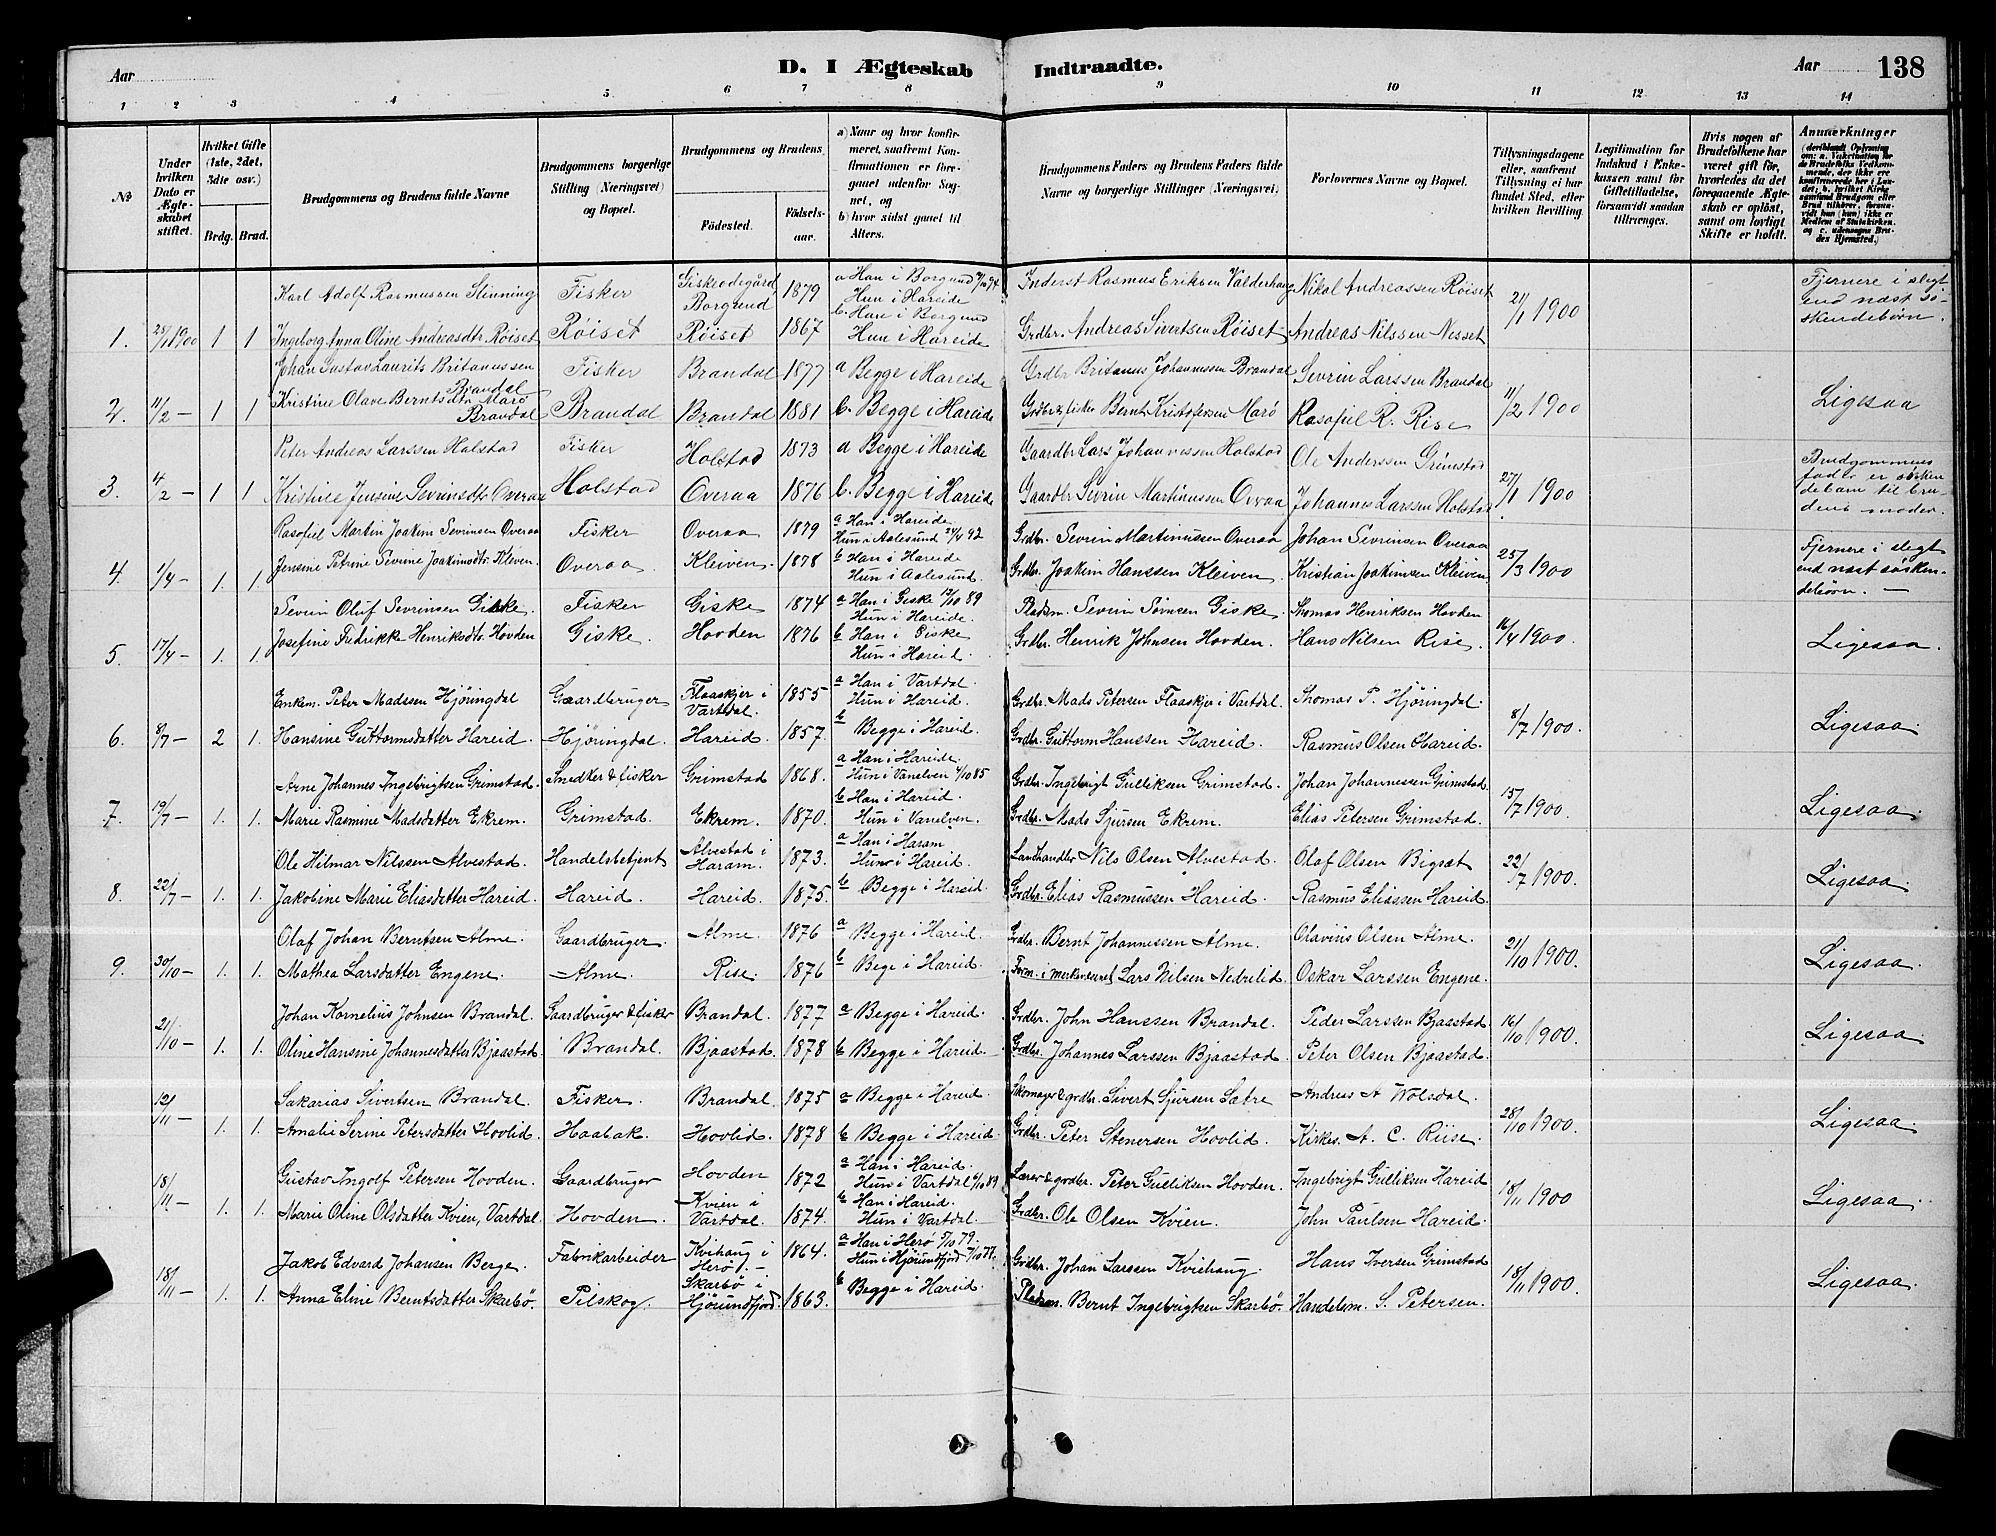 Aar
D. I Ægteskab Indtraadte.
Aar 138
1 2 3 4 5 6 7 8 9 10 11 12 13 14
No
Under hvilken Dato er Ægteskabet stiftet.
Hvilket Gifte (1ste, 2det, 3die osv.)
Brdg. Brud.
Brudgommens og Brudens fulde Navne
Brudgommens borgerlige Stilling (Næringsvei) og Bopæl.
Brudgommens og Brudens
Fødested. Fødselsaar.
a) Naar og hvor konfirmeret, saafremt Konfirmationen er foregaaet udenfor Sognet, og
b) hvor sidst gaaet til Alters.
Brudgommens Faders og Brudens Faders fulde Navne og borgerlige Stillinger (Næringsvei).
Forlovernes Navne og Bopæl.
Tillysningsdagene eller, saafremt Tillysning ei har fundet Sted, efter hvilken Bevilling.
Legitimation for Indskud i Enkekassen samt for Giftetilladelse, forsaavidt saadan tiltrænges.
Hvis nogen af Brudefolkene har været gift før, hvorledes da det foregaaende Ægteskab er opløst, samt om lovligt Skifte er holdt.
Anmærkninger
Karl Adolf Rasmussen Slinning Fisker Giskeødegård Borgund 1879 a Han i Borgund Hun i Hareide Inderst Rasmus Eriksen Valderhaug Nikol Andreassen Röiset 21/1 1900 Fjernere i slegt end næst søskendebörn.
1. 25/1 1900 1 1 Ingeborg Anna Oline Andreasdtr Röiset Röiset Röiset 1867 b. Han i Borgund Hun i Hareide Grdbr. Andreas Sivertsen Röiset Andreas Nilssen Nesset
Johan Gustav Laurits Britanussen Brandal Fisker Brandal 1877 a Begge i Hareide Grdbr Britanus Johannessen Brandal Sevrin Larssen Brandal 11/2 1900 Ligesaa
2. 11/2 – 1 1 Kristine Olave Berntsdtr Marö Brandal Brandal Brandal 1881 b. Begge i Hareide Grdbr & fisker Bernt Kristofersen Marö Rasofiel R. Rise
Peter Andreas Larssen Holstad Fisker Holstad 1873 a Begge i Hareide Gaardbr Lars Johannessen Holstad Ole Anderssen Grimstad 27/1 1900 Brudgommens fader er søskendebarn til brudens moder.
3. 4/2 – 1 1 Kristine Jensine Sevrinsdtr Overaa Holstad Overaa 1876 b. Begge i Hareide Gaardbr Sevrin Martinussen Overaa Johannes Larssen Holstad
Rasofiel Martin Joakim Sevrinsen Overaa Fisker Overaa 1879 a Han i Hareide Hun i Aalesund 24/4 92 Grdbr. Sevrin Martinussen Overaa Johan Sevrinsen Overaa 25/3 1900 Fjernere i slegt end næst søskendebörn. –
4. 1/4 – 1. 1. Jensine Petrine Sevrine Joakimsdtr. Kleven. Overaa. Kleiven. 1878 b Han i Hareide Hun i Aalesund. Grdbr. Joakim Hanssen Kleiven. Kristian Joakimsen Kleiven
Sevrin Oluf Sevrinsen Giske. Fisker Giske 1874 a Han i Giske 13/10 89 Hun i Hareide. Pladsm. Sevrin Sörnsen Giske. Thomas Henriksen Hovden 16/4 1900. Ligesaa.
5. 17/4 – 1. 1. Josefine Fredrikke Henriksdtr. Hovden Giske. Hovden 1876 b Han i Giske Hun i Hareid. Grdbr. Henrik Johnsen Hovden. Hans Nilsen Rise.
Enkem. Peter Madsen Hjöringdal Gaardbruger Flaaskjer i Vartdal. 1855 a Han i Vartdal. Hun i Hareid. Grdbr. Mads Petersen Flaaskjer i Vartdal. Thomas P. Hjöringdal. 8/7 1900. Ligesaa.
6. 8/7 – 2 1. Hansine Guttormsdatter Hareid. Hjöringdal. Hareid. 1857. b Begge i Hareid. Grdbr. Guttorm Hanssen Hareid. Rasmus Olsen Hareid.
Arne Johannes Ingebrigtsen Grimstad. Snedker & fisker Grimstad 1868. a Han i Hareide. Hun i Vanelven 4/10 85 Grdbr. Ingebrigt Gulliksen Grimstad. Johan Johannessen Grimstad. 15/7 1900. Ligesaa.
7. 19/7 – 1. 1. Marie Rasmine Madsdatter Ekrem. Grimstad. Ekrem. 1870. b Han i Hareid. Hun i Vanelven. Grdbr. Mads Sjursen Ekrem. Elias Petersen Grimstad.
Ole Hilmar Nilssen Alvestad. Handelsbetjent Alvestad i Haram. 1873. a Han i Haram Hun i Hareid. Landhandler Nils Olsen Alvestad. Olaf Olsen Bigset 22/7 1900. Ligesaa.
8. 22/7 – 1. 1. Jakobine Marie Eliasdatter Hareid. Hareid. Hareid. 1875. b Begge i Hareid. Grdbr. Elias Rasmussen Hareid. Rasmus Eliassen Hareid.
Olaf Johan Berntsen Alme. Gaardbruger. Alme. 1876 a Begge i Hareid. Grdbr. Bernt Johannessen Alme. Olavius Olsen Alme. 21/10 1900. Ligesaa.
9. 30/10 – 1. 1. Mathea Larsdatter Engene. Alme. Rise. 1876 b Bege i Hareid. Lars Nilsen Nedrelid Oskar Larssen Engene.
Johan Kornelius Johnsen Brandal. Gaardbruger & fisker Brandal. 1877 a Begge i Hareid. Grdbr. John Hanssen Brandal. Peder Larssen Bjaastad 16/10 1900. Ligesaa.
21/10 – 1. 1. Oline Hansine Johannesdatter Bjaastad. Brandal. Bjaastad. 1878 b Begge i Hareid. Grdbr. Johannes Larssen Bjaastad. Peter Olsen Bjaastad.
Sakarias Sivertsen Brandal. Fisker. Brandal. 1875 a Begge i Hareid. Skomager & grdbr. Sivert Sjursen Sætre Andreas A Wolsdal. 28/10 1900. Ligesaa.
12/11 – 1. 1. Amalie Serine Petersdatter Hovlid. Haabak. Hovlid. 1878 b Begge i Hareid. Grdbr. Peter Stenersen Hovlid. Kirkes. A. C. Riise.
Gustav Ingolf Petersen Hovden. Gaardbruger Hovden 1872 a Han i Hareid. Hun i Vartdal 6/10 89 Lærer & grdbr. Peter Gulliksen Hovden. Ingebrigt Gulliksen Hareid 18/11 1900 Ligesaa.
18/11 – 1. 1. Marie Oline Olsdatter Kvien, Vartdal. Hovden. Kvien i Vartdal. 1874. b Han i Hareid. Hun i Vartdal. Grdbr. Ole Olsen Kvien. John Paulsen Hareid.
Jakob Edvard Johansen Berge. Fabrikarbeider Kvihaug i Herö. – 1864. a Han i Herö 5/10 79. Hun i Hjörundfjord Grdbr. Johan Larssen Kviehaug. Hans Iversen Grimstad 18/11 1900. Ligesaa.
18/11 – 1. 1. Anna Eline Berntsdatter Skarbö. Pilskog. Skarbö i Hjörundfjord. 1863. b Begge i Hareid. Pladsm. Bernt Ingebrigtsen Skarbö. Handelsm. S. Petersen.